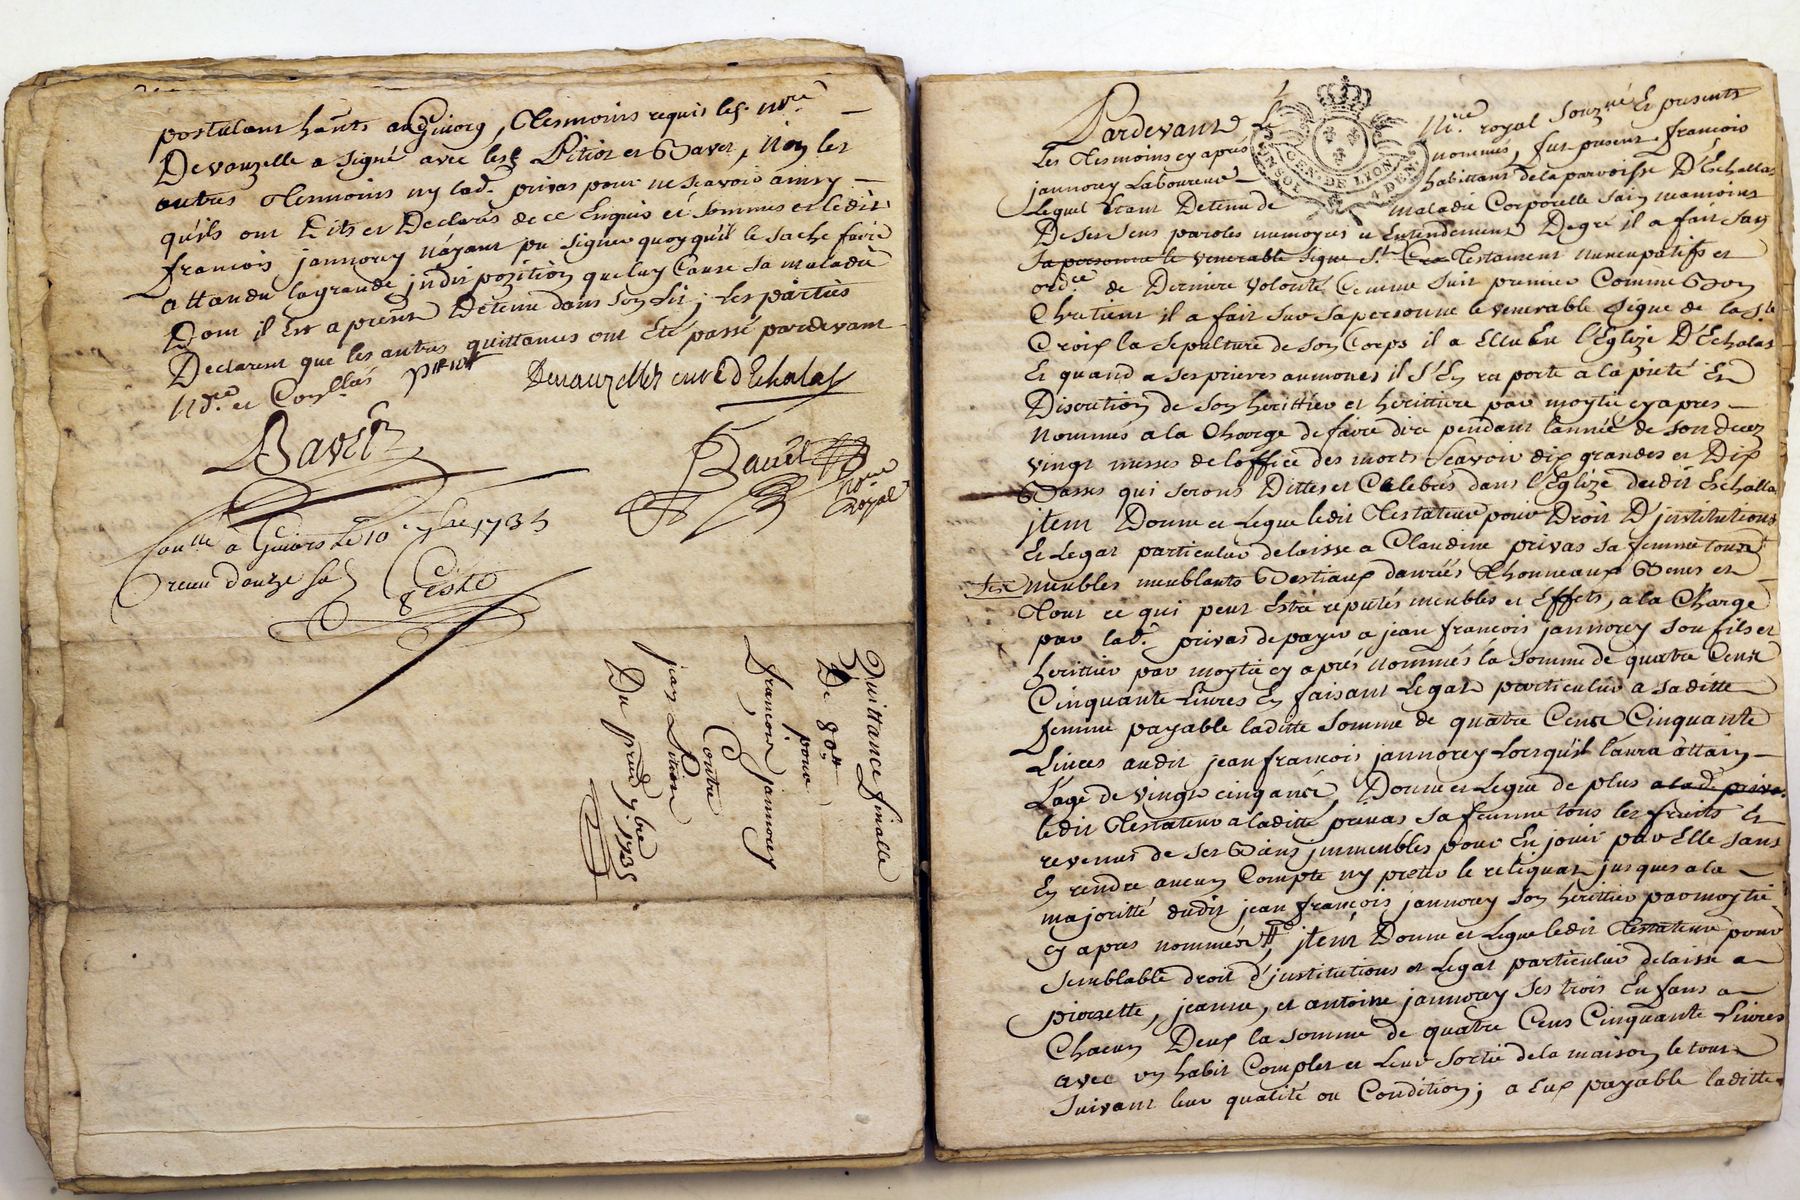 postulant h̃nts a Givors, Tesmoins requis les. Sr.
Devauzelle a signé avec lesd. Pitiot et Bavet, Non les
autres Tesmoins ny lad. privas pour ne scavoir ainsy
qu'ils ont Dits et Declarés de ce Enquis et sommes et ledit
francois jannorey nayant pu signer quoy qu'il le sache faire
attandu la grande jndispozition que luy Cause sa maladie
Dont il Est a present Detenu dans son Lit; Les parties
Declarent que les autres quittances ont Eté passé pardevant
Nore. et Con
Devauzelles curé d'Echalas
Bavet
Bavet
Nore
Royal
Conlle a Givors Le 10e 7bre 1735
receu douze s
Quittance finalle
De 80tt
pour
francois jannorey
Contre
jean Pitiot
Du pred. 7bre 1735
GEN. DE LYON
Pardevant Le Nre. royal Souzné Et presents
Les Tesmoins cy apres nommés, fut present francois
jannorey Laboureur habittant de la parroisse D'Echallas
Lequel Etant Detenu de maladie Corporelle sain
De ses sens paroles memoyres et Entendement De gré il a fait son
sa personne le venerable signe Ste Croix Testament nuncupatifs et
ordce. de Derniere volonté Comme suit premier Comme Bon
Chretient il a fait sur sa personne le venerable signe de la Ste
Croix la sepulture de son Corps il a Elluë En l'Eglize D'Echalas
Et quand a ses prieres aumones il s'En raporte a la pieté Et
Discretion de son herittier et heritiere par moytié cy apres
Nommés a la Charge de faire dire pendant l'année de son decez
vingt messes de l'office des morts scavoir dix grandes et Dix
Basses qui serons Dittes et Celebres dans l'Eglize dudit Eschallas
jtem Donne et Legue ledit Testateur pour Droit D'jnstitutions
Et Legat particulier delaisse a Claudine privas sa femme tous
ses meubles meublants Bestiaux danrées Thonneaux Benes et
Tout ce qui peut Estre reputés meubles et Effets, a la Charge
par lad. privas de payer a jean francois jannorey son fils et
heritier par moytié cy aprés Nommés la somme de quatre Cent
Cinquante Livres En faisant Legat particulier a saditte
femme payable laditte somme de quatre Cent Cinquante
Livres audit jean francois jannorey Lorsqu'il l'aura attain
L'age de vingt cinq ans, Donne et Legue de plus a lade. privas
ledit Testateur a laditte privas sa femme tous les fruits Et
revenus de ses Biens jmmeubles pour En jouir par Elle sans
En rendre aucun Compte ny preter le reliquat jusques a la
majoritté dudit jean francois jannorey son herittier par moytié
cy apres nommés, jtem Donne et Legue ledit Testateur pour
semblable droit d'jnstitutions et Legat particulier delaisse a
pierrette, jeanne, et antoine jannorey ses trois Enfans a
Chacun Deux la somme de quatre Cens Cinquante Livres
avec un habit Complet a Leur sortie de la maison le tout
suivant leur qualité ou Condition; a Eux payable laditte